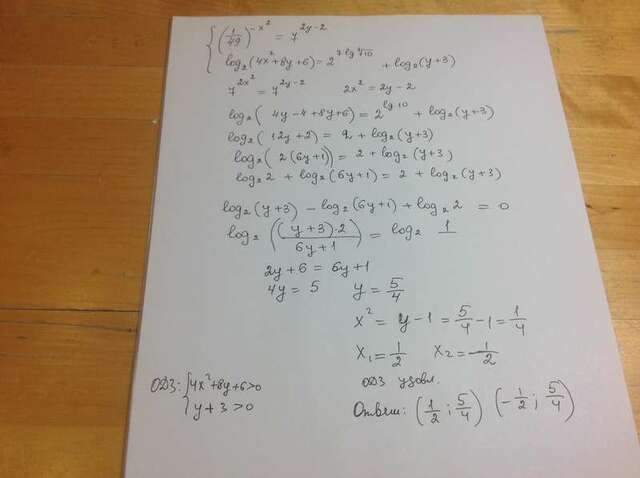 { (1/49)^(-x²) = 7^(2y-2)
log₂(4x²+8y+6) = 2^(7 lg ⁷√10) + log₂(y+3)
7^(2x²) = 7^(2y-2)   2x² = 2y-2
log₂(4y-4+8y+6) = 2^(lg 10) + log₂(y+3)
log₂(12y+2) = 2 + log₂(y+3)
log₂(2(6y+1)) = 2 + log₂(y+3)
log₂2 + log₂(6y+1) = 2 + log₂(y+3)
log₂(y+3) - log₂(6y+1) + log₂2 = 0
log₂((y+3)·2 / 6y+1) = log₂ 1
2y+6 = 6y+1
4y = 5   y = 5/4
x² = y-1 = 5/4 - 1 = 1/4
x₁ = 1/2   x₂ = -1/2
ОДЗ: { 4x²+8y+6>0
y+3>0
ОДЗ удовл.
Ответ: (1/2; 5/4) (-1/2; 5/4)